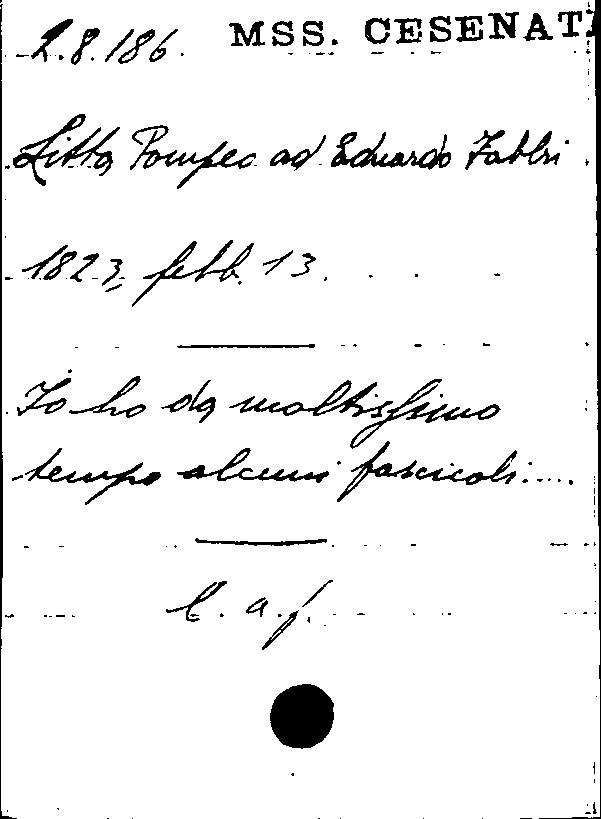 2.8.186. MSS. CESENATI
Litta Pompeo ad Eduardo Fabbri
1823, febb. 13.
Io ho da moltissimo
tempo alcuni fascicoli....
l. a. f.